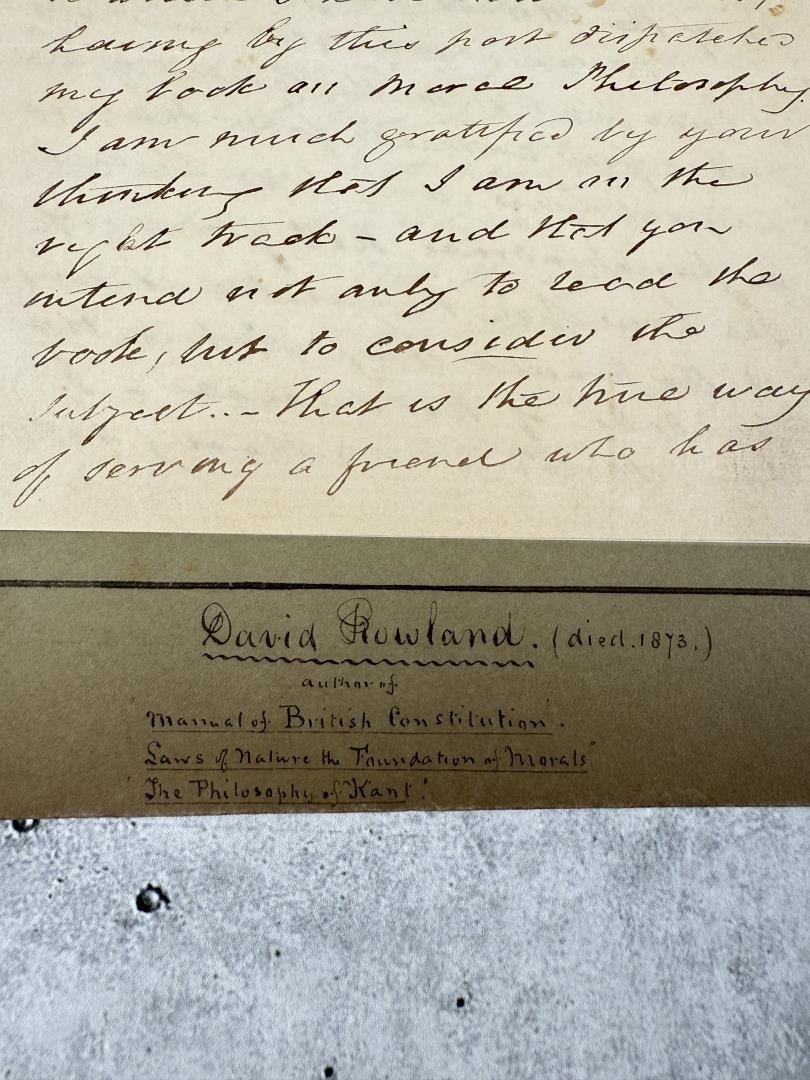 having by this post dispatched
my book on Moral Philosophy.
I am much gratified by your
thinking that I am in the
right track – and that you
intend not only to read the
book, but to consider the
subject.. – that is the true way
of serving a friend who has
David Rowland. (died. 1873.)
author of
"Manual of British Constitution".
"Laws of Nature the Foundation of Morals"
"The Philosophy of Kant".